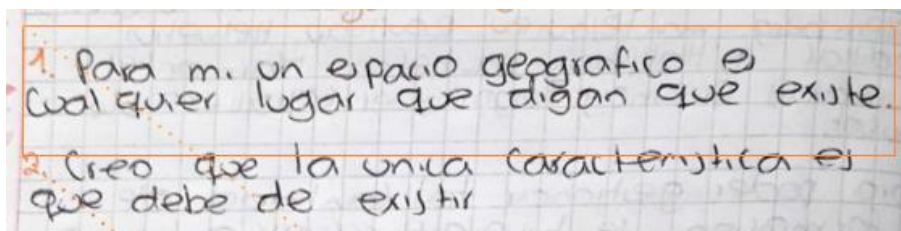 1. Para mi un espacio geografico es
cualquier lugar que digan que existe.
2. Creo que la unica caracteristica es
que debe de existir